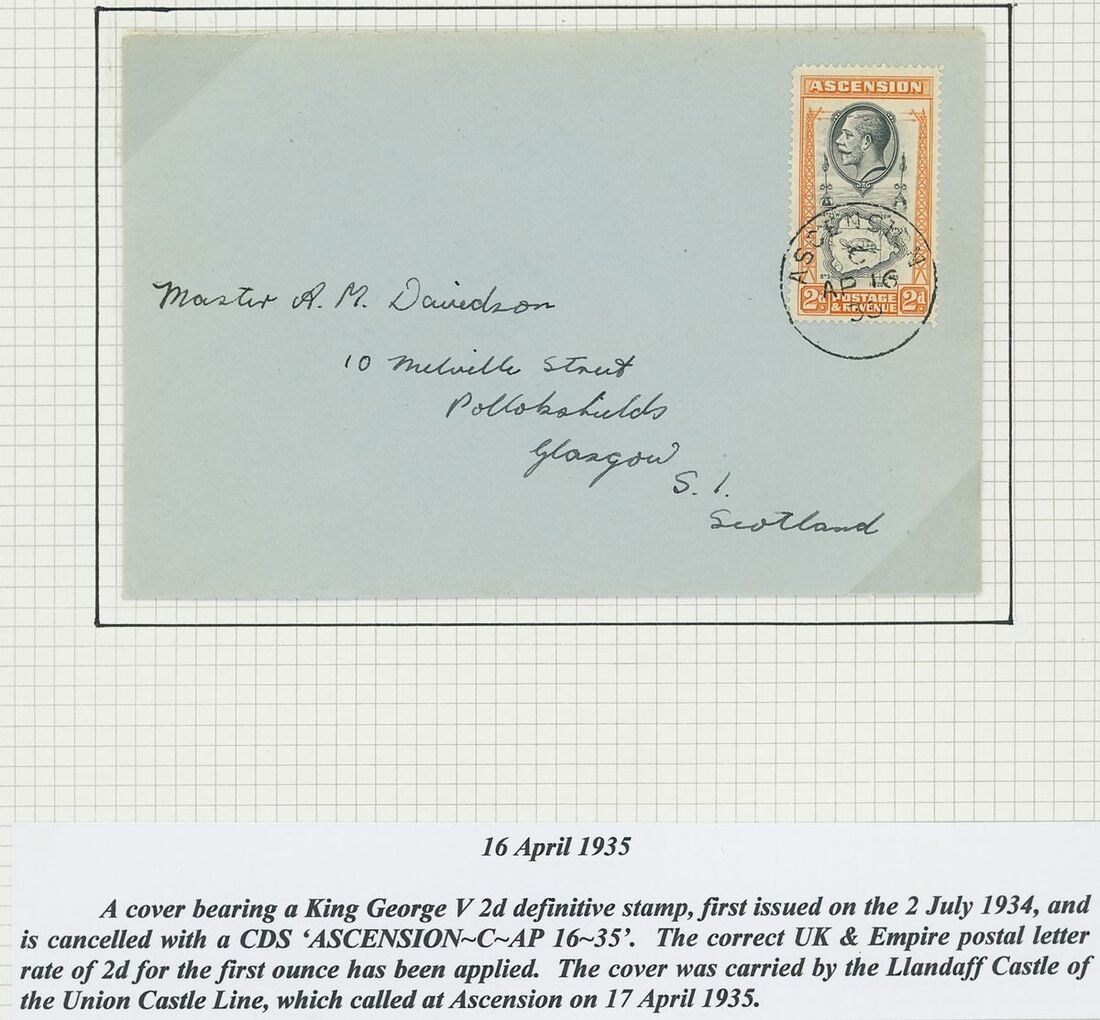 ASCENSION
2d POSTAGE & REVENUE 2d
ASCENSION
C
AP 16
35
Master A. M. Davidson
10 Melville Street
Pollokshields
Glasgow
S. 1.
Scotland
16 April 1935
A cover bearing a King George V 2d definitive stamp, first issued on the 2 July 1934, and
is cancelled with a CDS ‘ASCENSION~C~AP 16~35’. The correct UK & Empire postal letter
rate of 2d for the first ounce has been applied. The cover was carried by the Llandaff Castle of
the Union Castle Line, which called at Ascension on 17 April 1935.